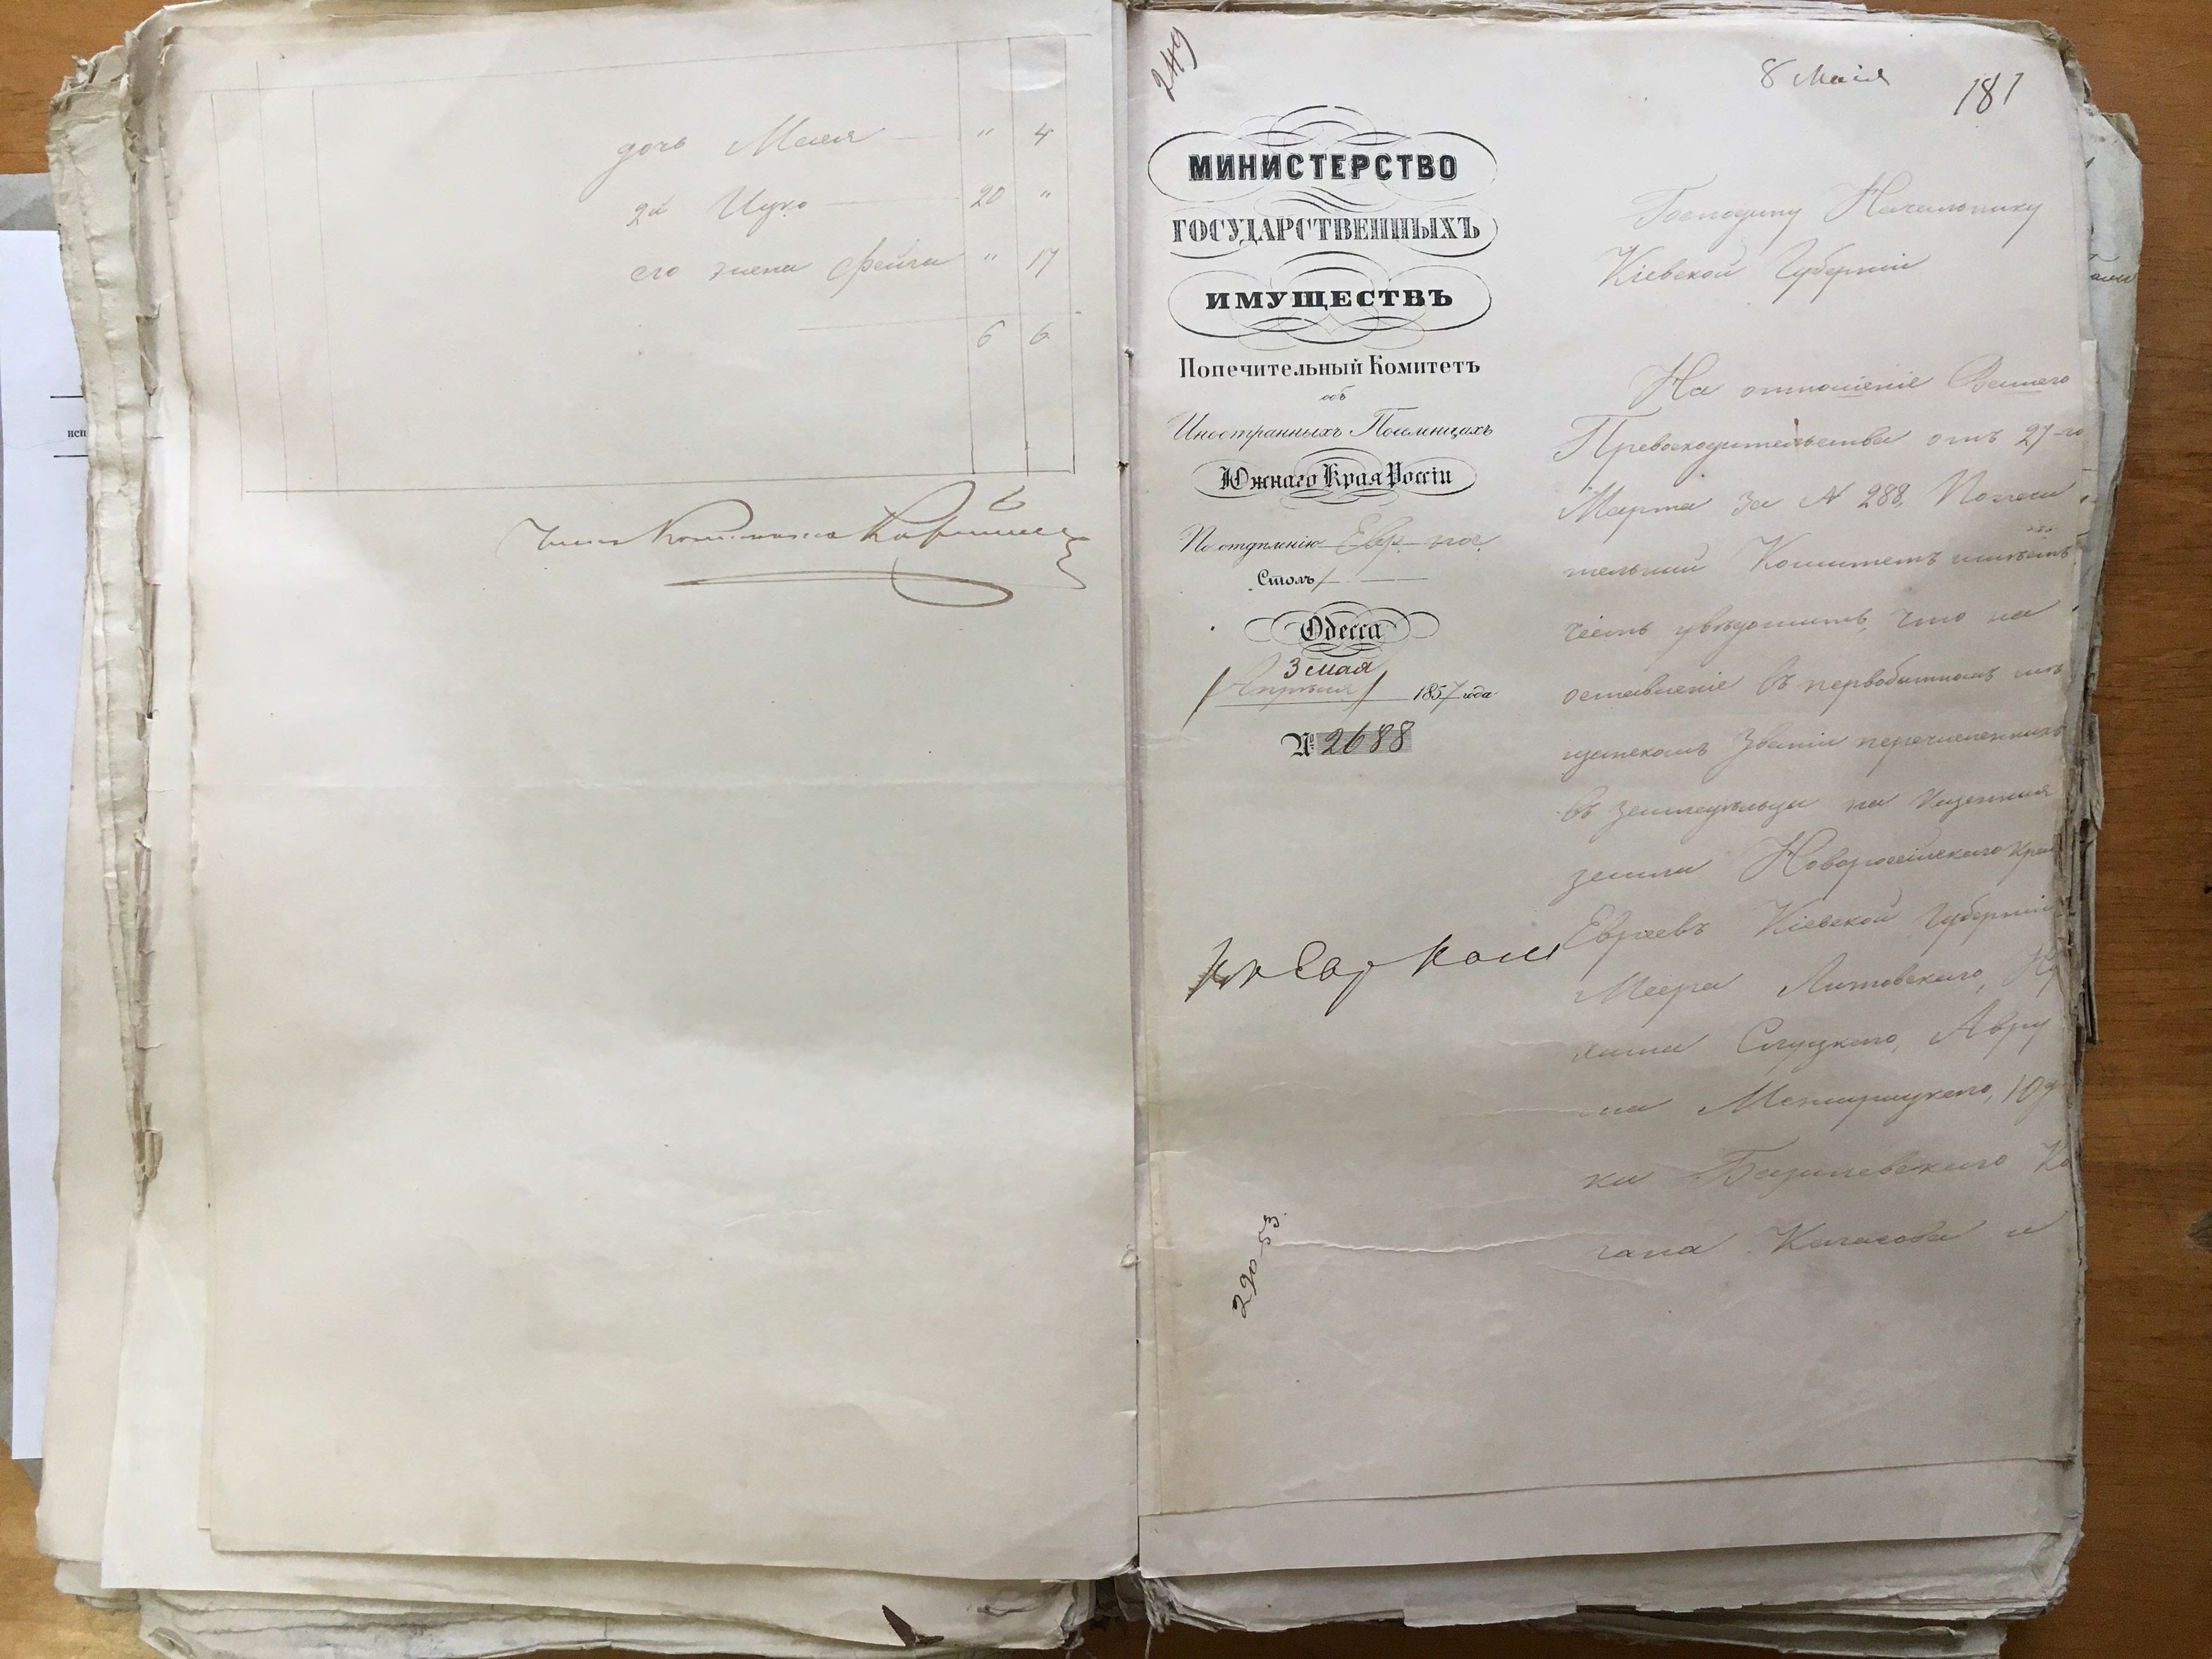 дочь Мася — " 4
2й Ицко — 20 "
его жена Фейга " 17
6 6
249
8 Маія
181
МИНИСТЕРСТВО
ГОСУДАРСТВЕННЫХЪ
ИМУЩЕСТВЪ
Попечительный Комитетъ
объ
Иностранныхъ Поселенцахъ
Южнаго Края Россіи
По отдѣленію Евр. пос.
Столъ 1
Одесса
3 мая
Апрѣля 1857 года
№ 2688
290-53
Господину Начальнику
Кіевской Губерніи
На отношеніе Вашего
Превосходительства отъ 27-го
Марта за N 288, Попечи
тельный Комитетъ имѣетъ
честь увѣдомить, что на
оставленіе въ первобытномъ мѣ
щанскомъ званіи перечисленныхъ
въ земледѣльцы на казенныя
земли Новороссійскаго края
Евреевъ Кіевской Губерніи
Меера Литовскаго, Ну
хима Слуцкаго, Авру
ма Межирицкаго, Юд
ки Базилевскаго Ко
гана Кагасова и